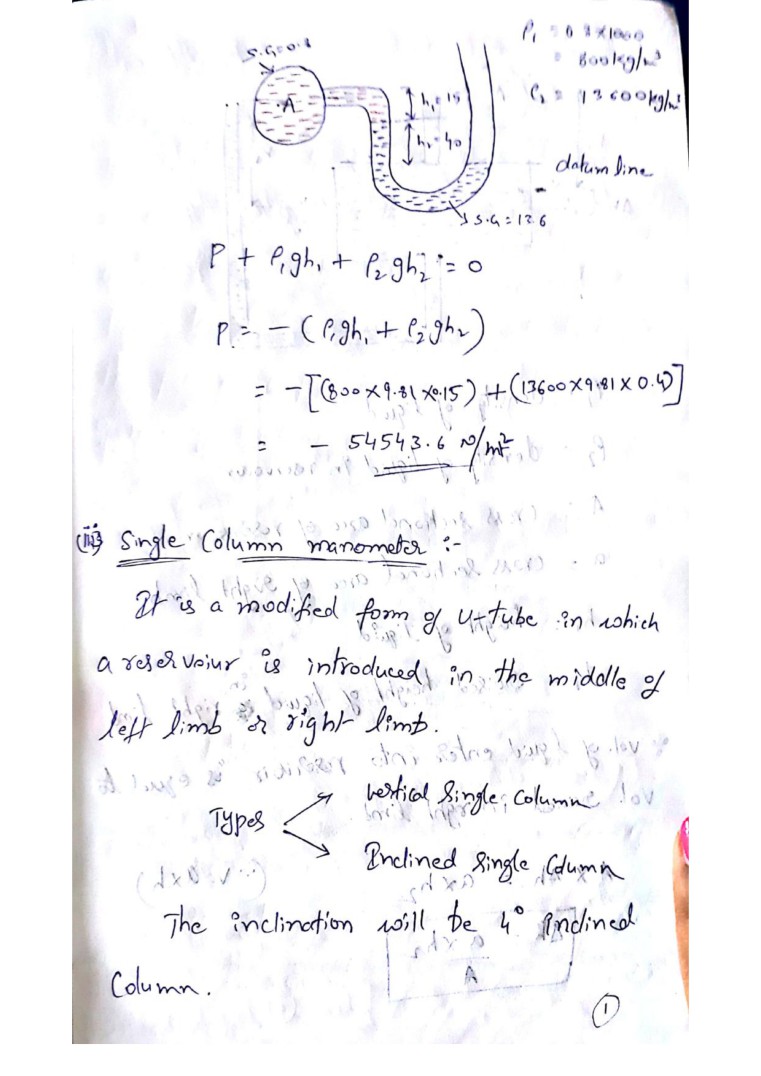 S.G=0.8
ρ₁ = 0.8×1000
= 800kg/m³
A
h₁=15
ρ₂ = 13600kg/m³
h₂=40
datum line
S.G=13.6
P + ρ₁gh₁ + ρ₂gh₂ = 0
P = -(ρ₁gh₁ + ρ₂gh₂)
= -[(800×9.81×0.15) + (13600×9.81×0.4)]
= - 54543.6 N/m²
(iii) Single Column manometer :-
It is a modified form of U-tube in which
a reservoiur is introduced in the middle of
left limb or right limb.
Types
vertical Single column
Inclined Single Column
The inclination will be 4° Inclined
Column.
1